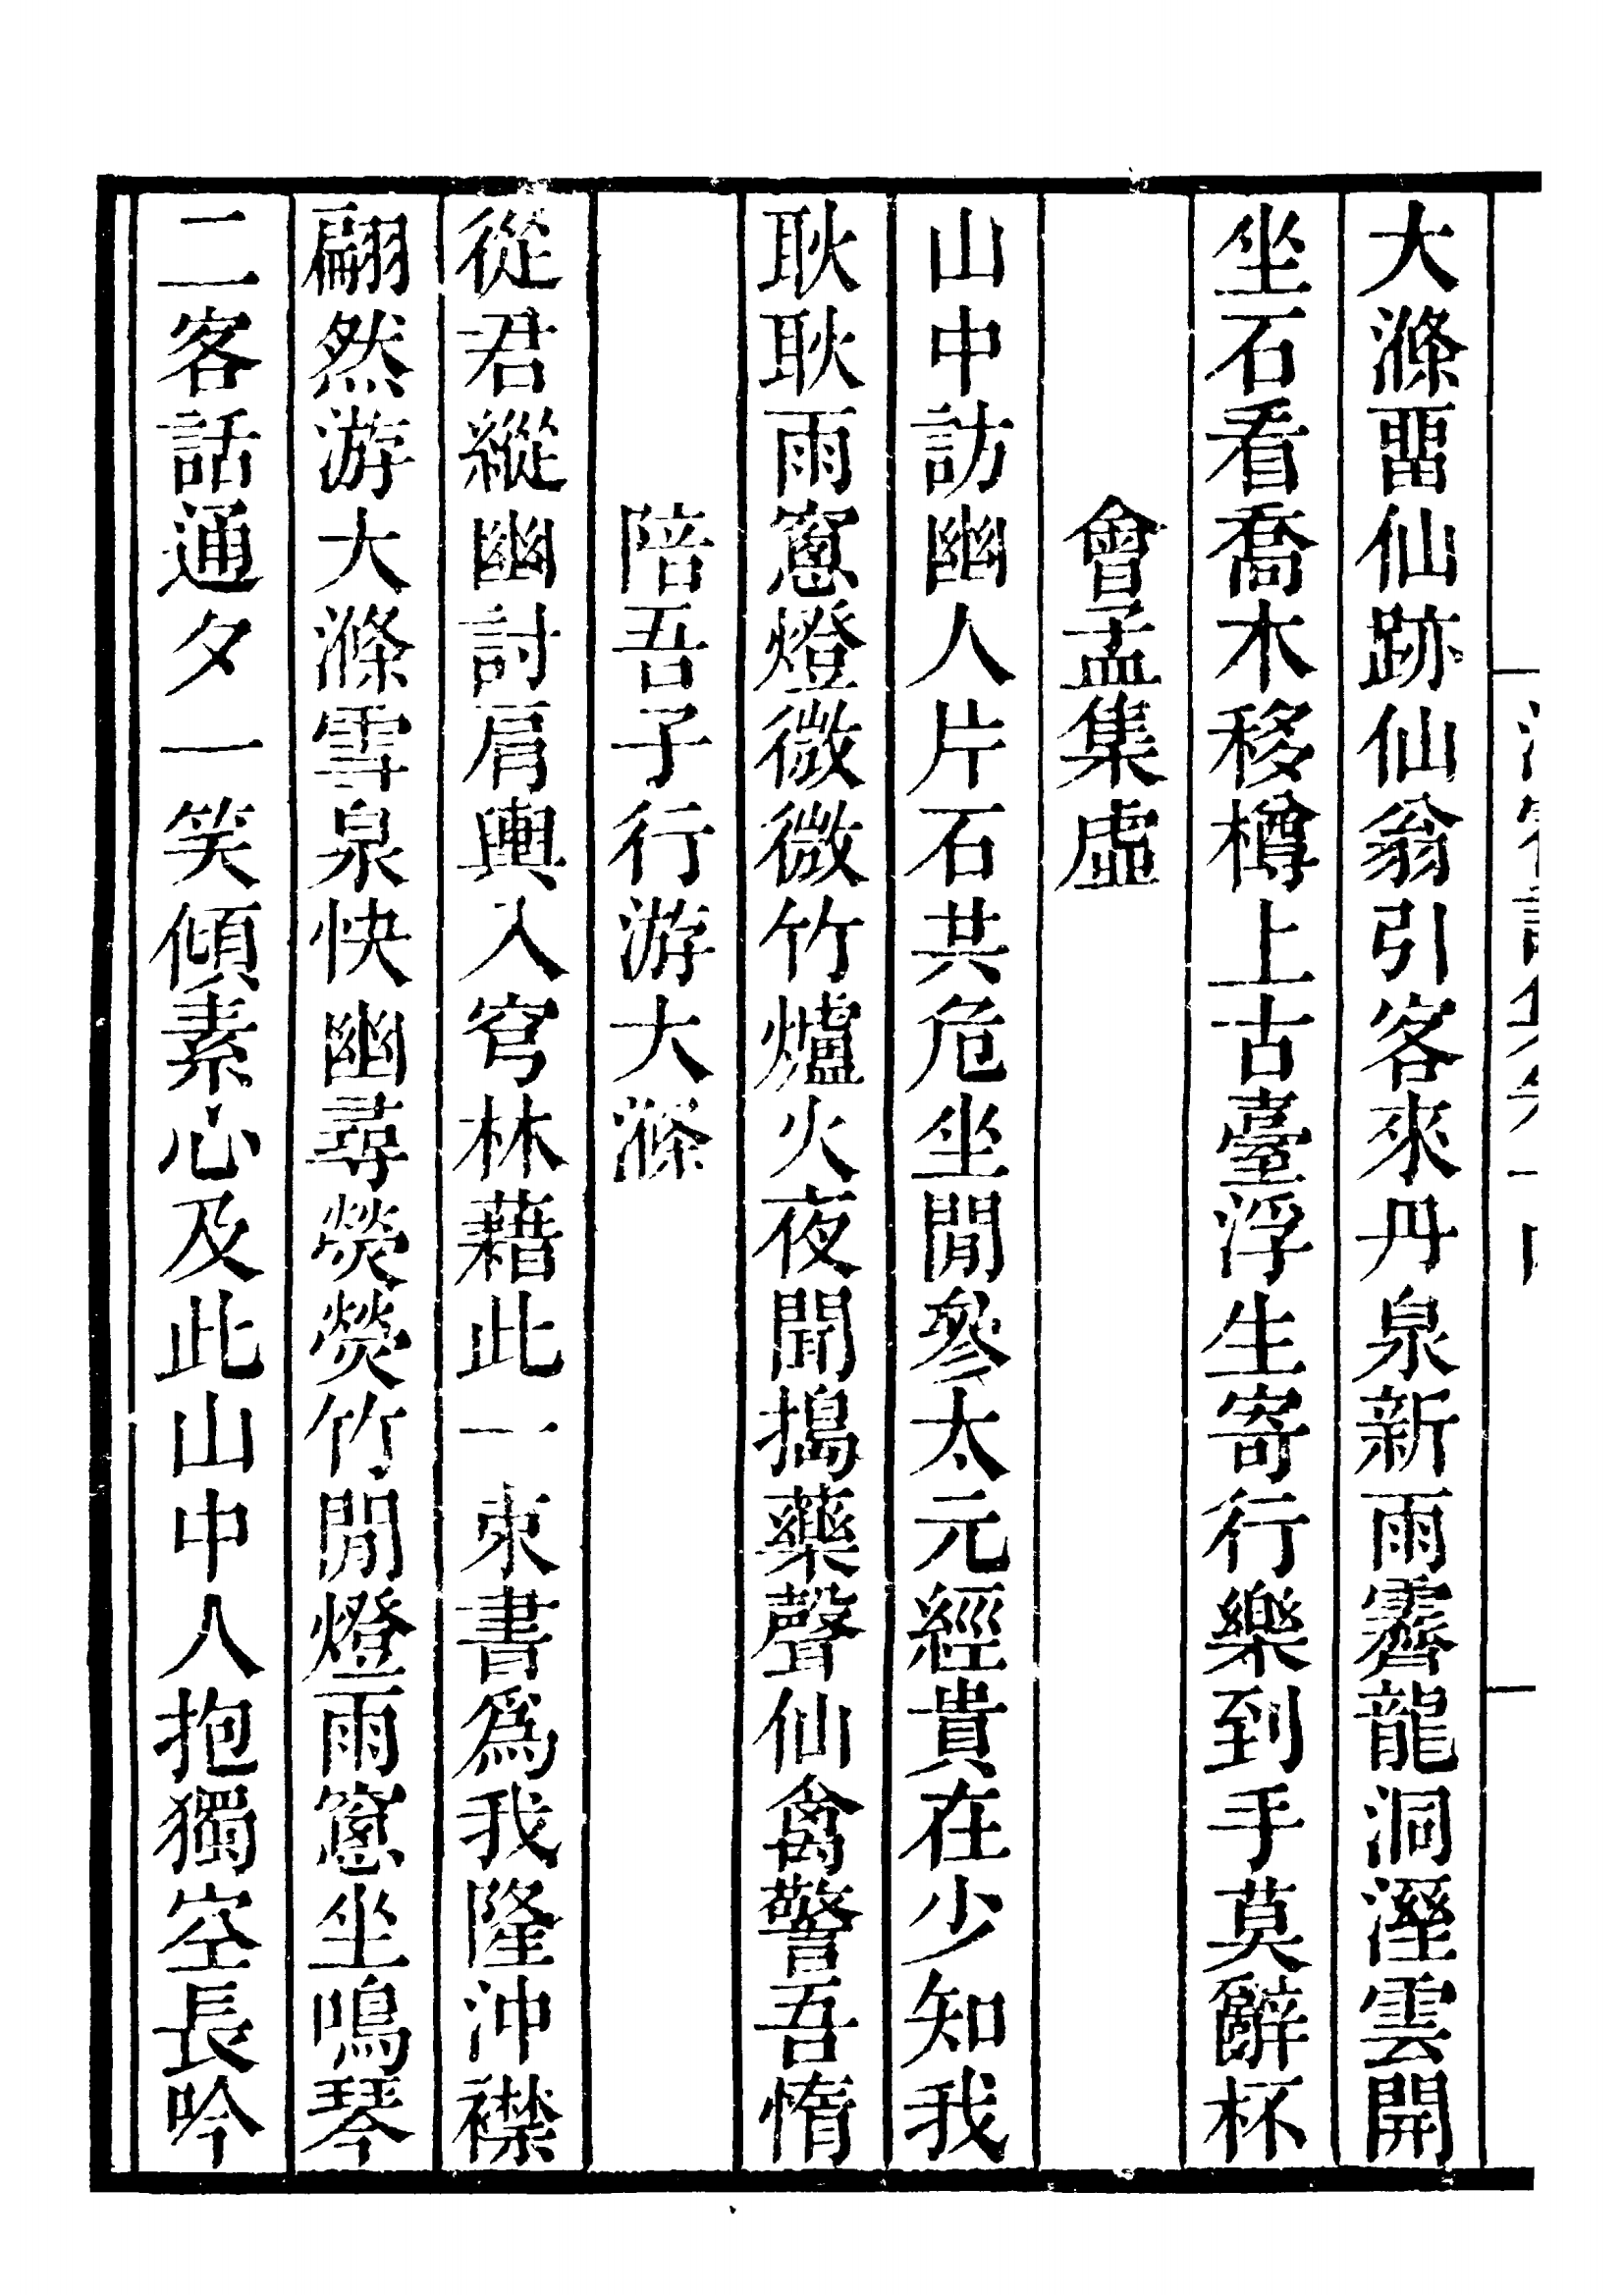 大滌畱仙跡仙翁引客來丹泉新雨霽龍洞溼雲開
坐石看喬木移樽上古臺浮生寄行樂到手莫辭杯
會孟集虛
山中訪幽人片石共危坐閒參太元經貴在少知我
耿耿雨窻燈微微竹爐火夜聞搗藥聲仙禽警吾惰
陪吾子行游大滌
從君縱幽討肩輿入穹林藉此一束書爲我隆沖襟
翩然游大滌雪泉快幽尋熒熒竹閒燈雨窻坐鳴琴
二客話通夕一笑傾素心及此山中人抱獨空長吟